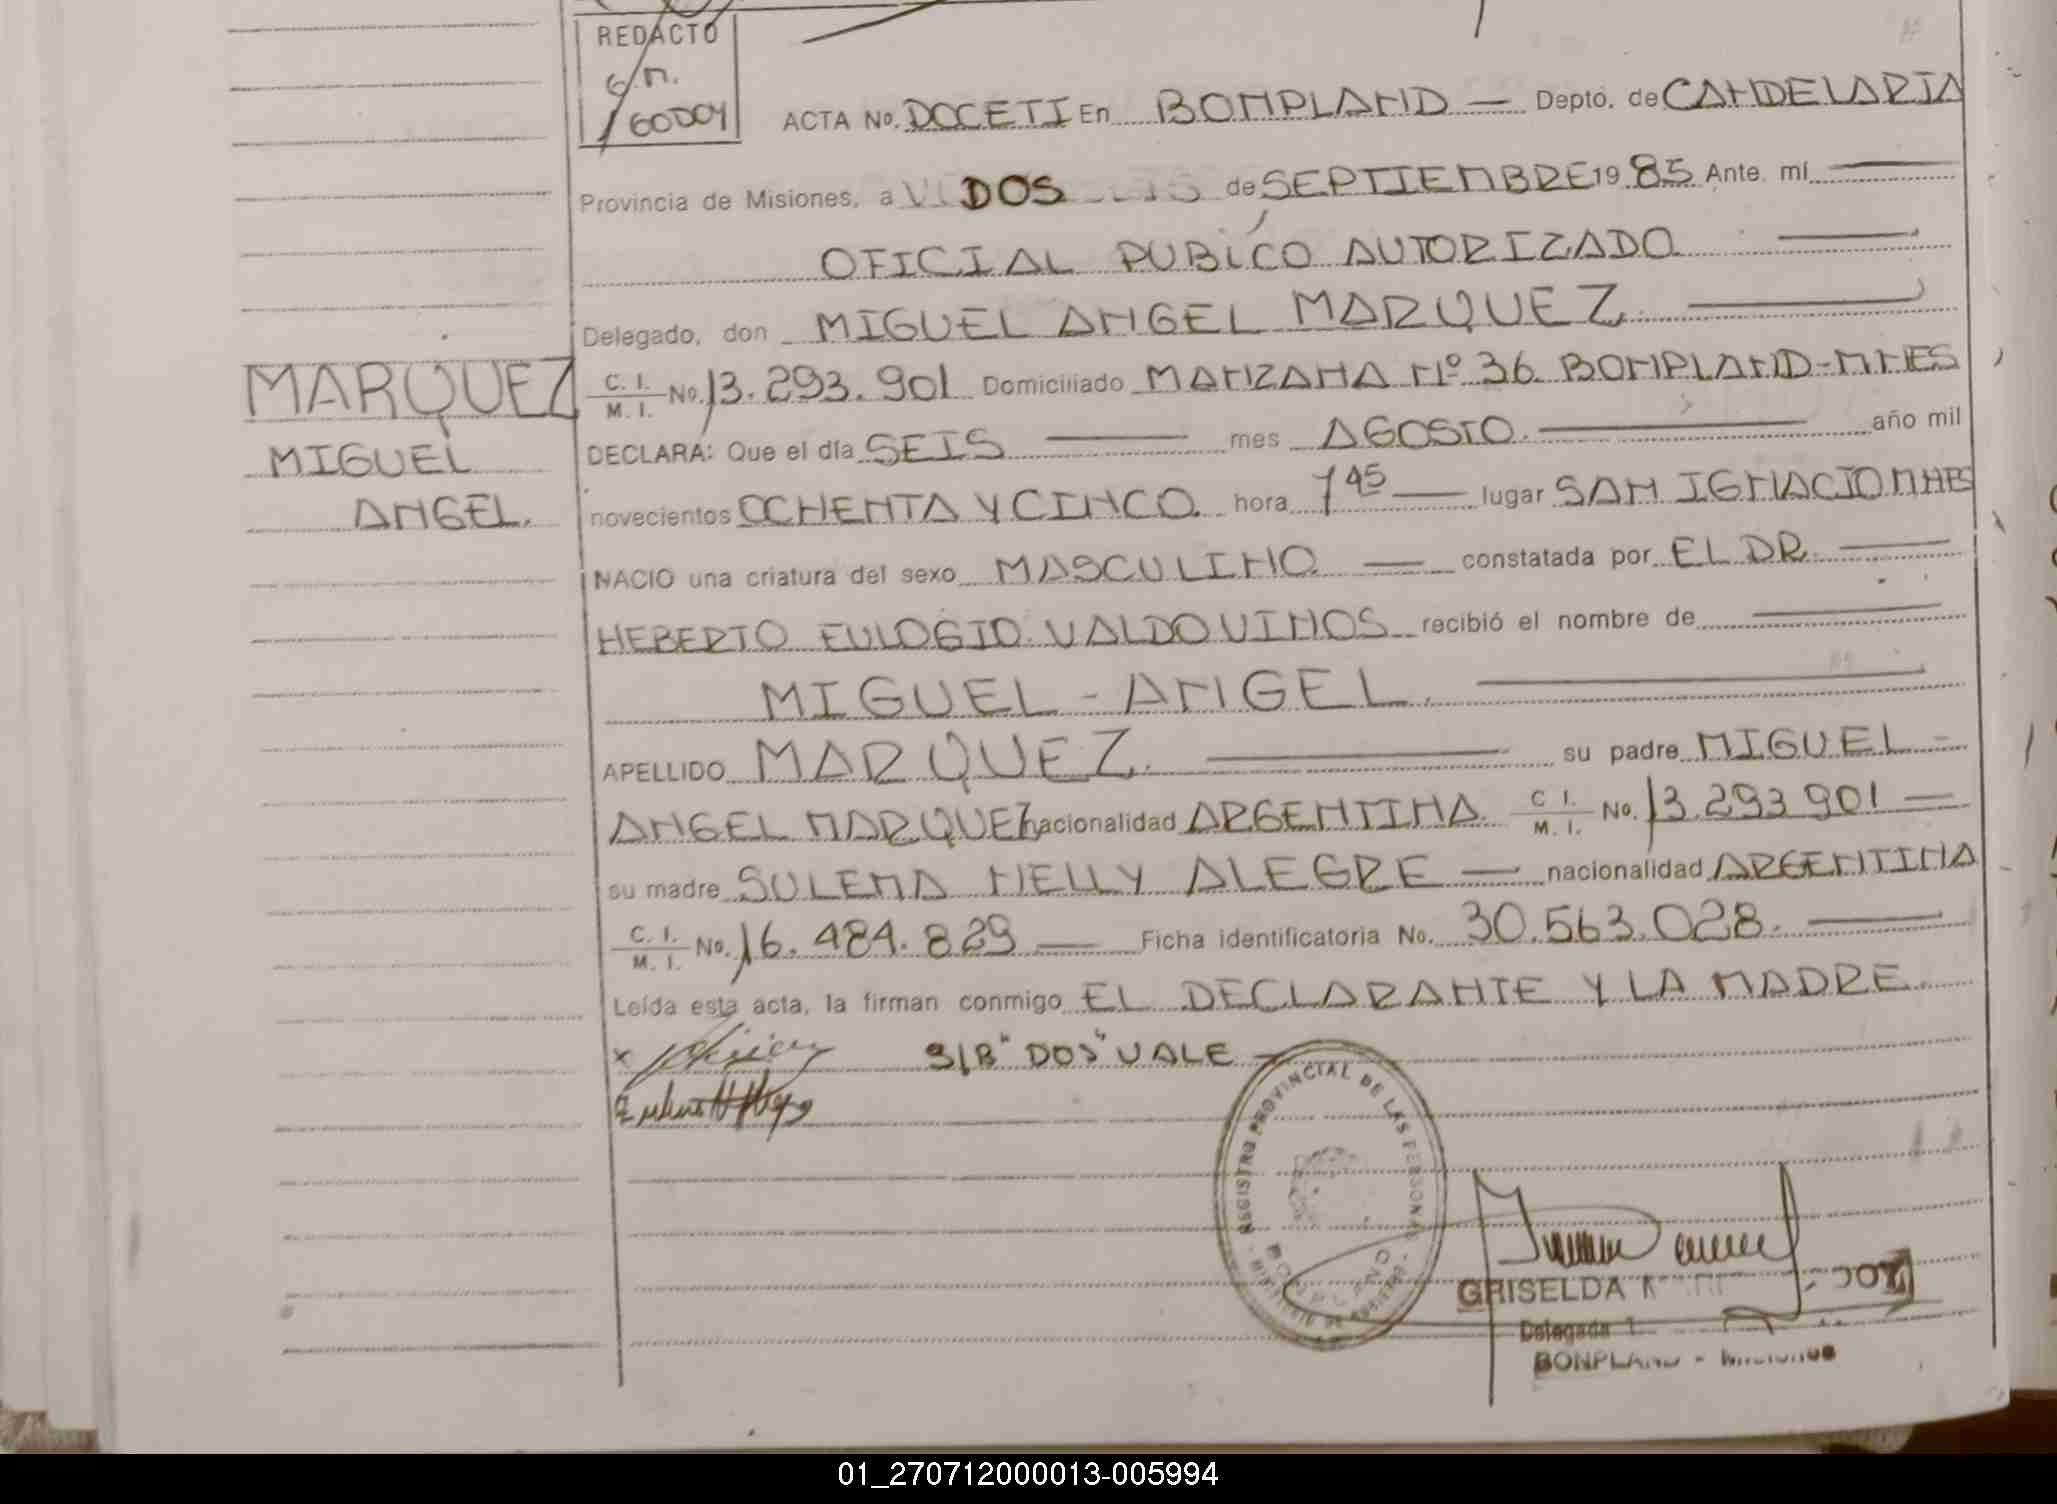 REDACTO
G.M.
GODOY
ACTA No. DOCETI En BONPLAND — Depto. de CANDELARIA
Provincia de Misiones, a DOS de SEPTIEMBRE 1985 Ante mí
OFICIAL PUBLICO AUTORIZADO
Delegado, don MIGUEL ANGEL MARQUEZ
MARQUEZ
MIGUEL
ANGEL.
C. I. M. I. No. 13.293.901 Domiciliado MANZANA Nº 36 BONPLAND-MNES
DECLARA: Que el día SEIS mes AGOSTO. año mil
novecientos OCHENTA Y CINCO. hora 7 45 lugar SAN IGNACIO MNES
NACIO una criatura del sexo MASCULINO — constatada por EL DR.
HEBERTO EULOGIO VALDOVINOS recibió el nombre de
MIGUEL - ANGEL.
APELLIDO MARQUEZ. su padre MIGUEL -
ANGEL MARQUEZ nacionalidad ARGENTINA. C. I. M. I. No. 13.293.901 —
su madre SULEMA NELLY ALEGRE — nacionalidad ARGENTINA
C. I. M. I. No. 16.484.829 — Ficha identificatoria No. 30.563.028.
Leída esta acta, la firman conmigo EL DECLARANTE Y LA MADRE.
x
S/B "DOS" VALE —
REGISTRO PROVINCIAL DE LAS PERSONAS
BONPLAND
GRISELDA
Delegada
BONPLAND - Misiones
01_270712000013-005994